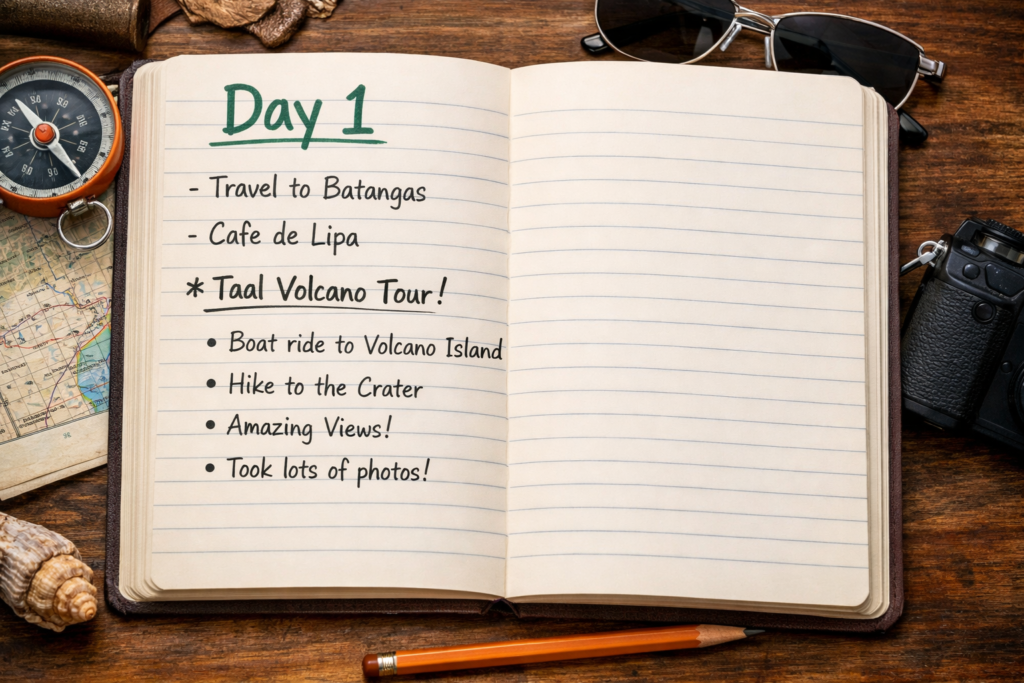 Day 1
- Travel to Batangas
- Cafe de Lipa
* Taal Volcano Tour!
• Boat ride to Volcano Island
• Hike to the Crater
• Amazing Views!
• Took lots of photos!